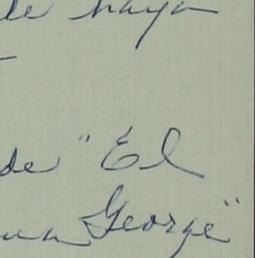 de haya
de "El
George"